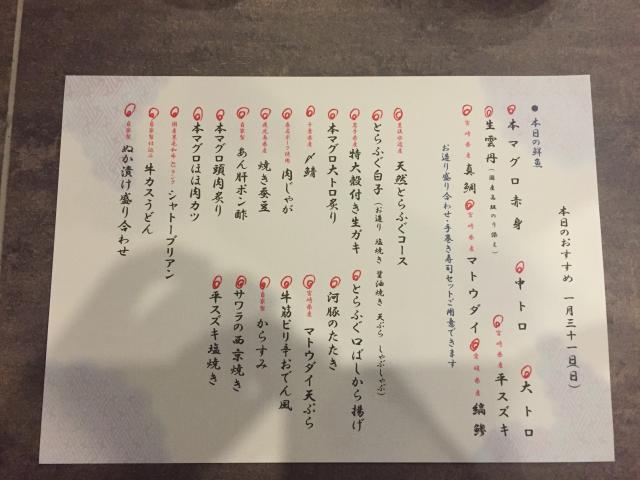 本日のおすすめ 一月三十一日(日)
●本日の鮮魚
本マグロ赤身 中トロ 大トロ
生雲丹(国産高級のり添え) 宮崎県産 平スズキ
宮崎県産 真鯛 宮崎県産 マトウダイ 愛媛県産 縞鯵
お造り盛り合わせ・手巻き寿司セットご用意できます
天然とらふぐコース
とらふぐ白子(お造り 塩焼き 醤油焼き 天ぷら しゃぶしゃぶ)
岩手県産 特大殻付き生ガキ とらふぐ口ばしから揚げ
本マグロ大トロ炙り 河豚のたたき
千葉県産 〆鯖 宮崎県産 マトウダイ天ぷら
肉じゃが 牛筋ピリ辛おでん風
鹿児島県産 焼き蚕豆 自家製 からすみ
自家製 あん肝ポン酢 サワラの西京焼き
本マグロ頭肉炙り 平スズキ塩焼き
本マグロほほ肉カツ
国産黒毛和牛 シャトーブリアン
自家製 牛カスうどん
自家製 ぬか漬け盛り合わせ